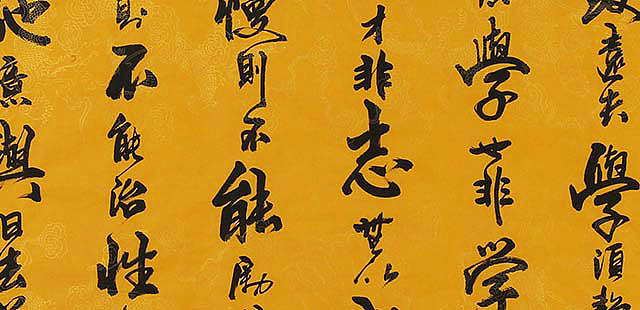 遠夫學須靜
學也非学
才非志無以
慢則不能励
則不能治性
馳意與日去